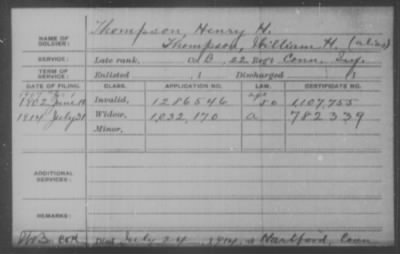 NAME OF SOLDIER: Thompson, Henry H.
Thompson, William H. (alias)
SERVICE: Late rank, Co B, 22 Reg't Conn. Inf.
TERM OF SERVICE: Enlisted , 1 Discharged , 1
DATE OF FILING. CLASS. APPLICATION NO. LAW. CERTIFICATE NO.
1902 June Invalid, 1286546 1,107,755
1914 July 31 Widow, 1,032,170 a 782339
Minor,
ADDITIONAL SERVICES:
REMARKS:
Died July 24 1914, at Hartford, Conn